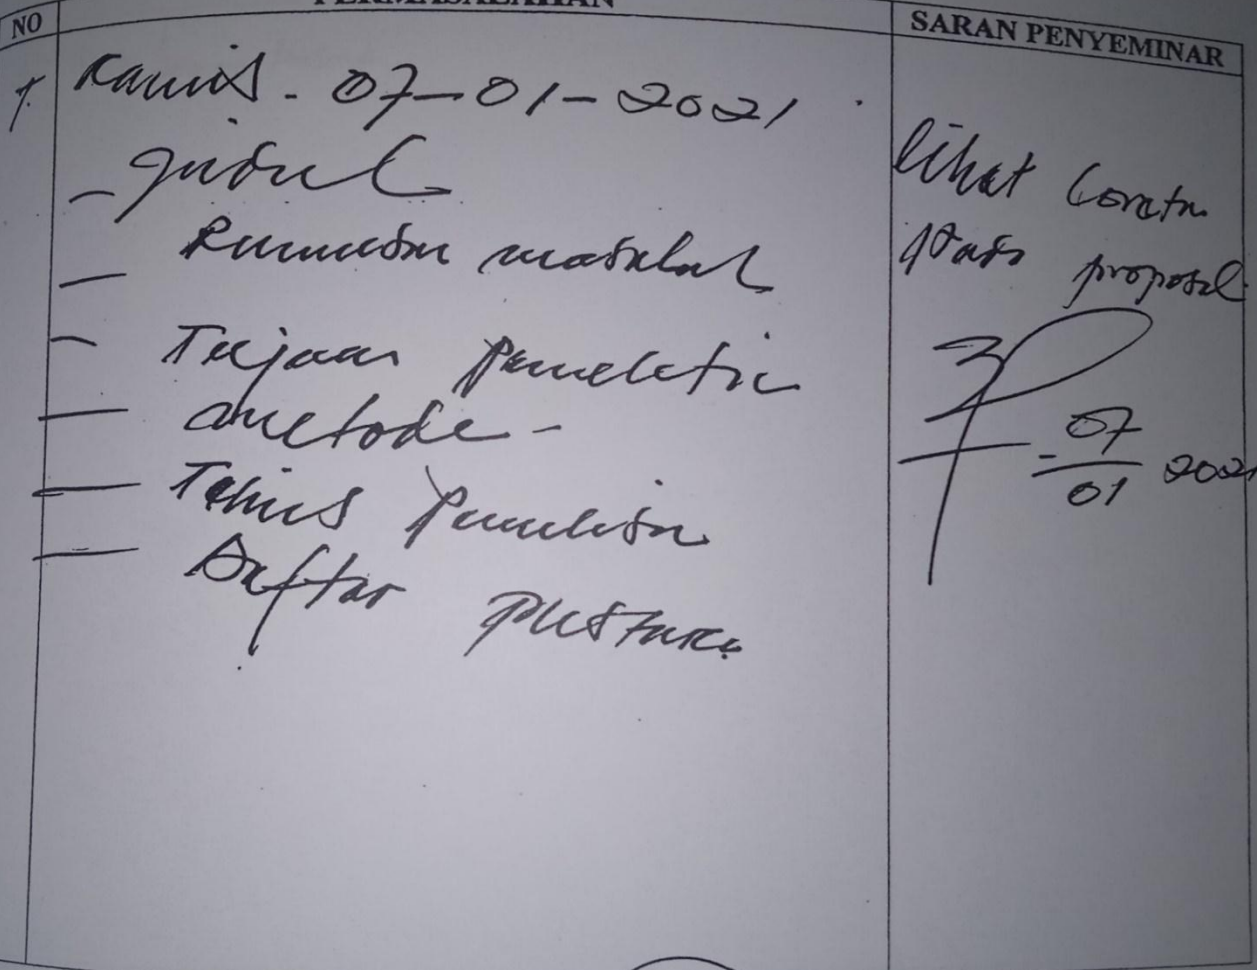 NO
PERMASALAHAN
SARAN PENYEMINAR
1. Kamis. 07-01-2021
- Judul
- Rumusan masalah
- Tujuan penelitian
- metode -
- Teknis penelitian
- Daftar pustaka.
lihat Coretan
pada proposal
- 07/01 2021